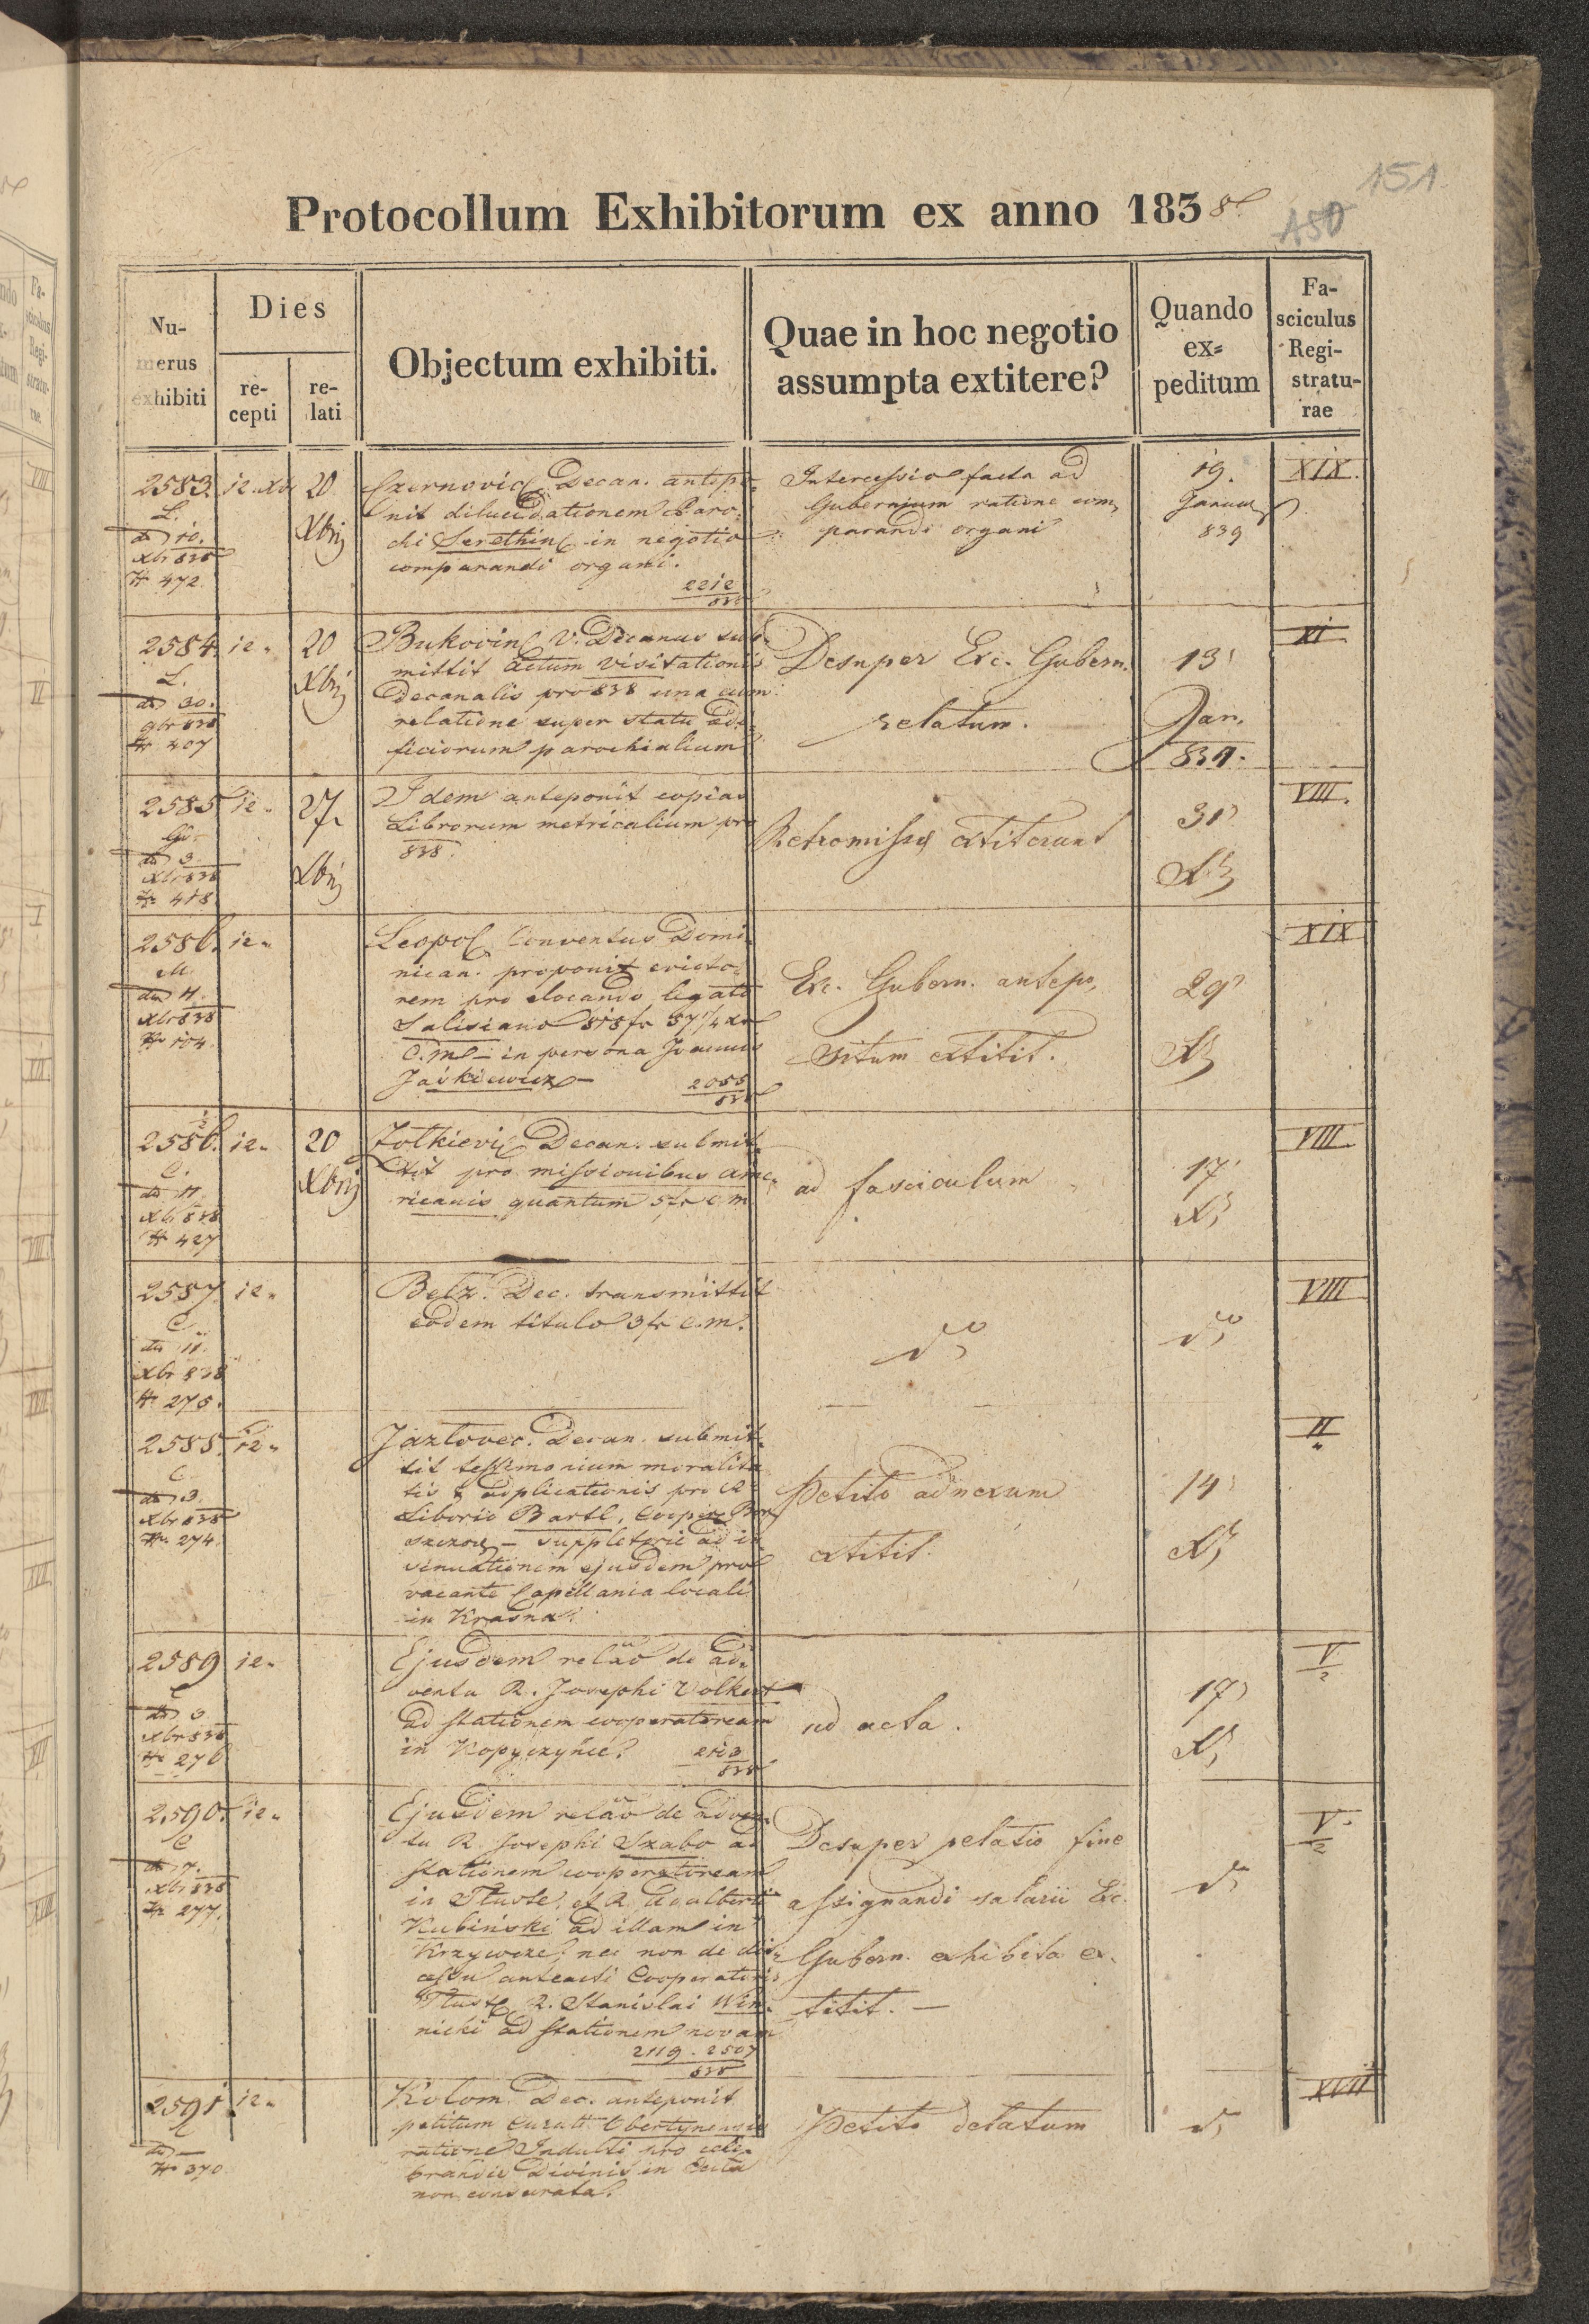 151
150
Protocollum Exhibitorum ex anno 1838
Nu-
merus
exhibiti
Dies
re-
cepti
re-
lati
Objectum exhibiti.
Quae in hoc negotio
assumpta extitere?
Quando
ex-
peditum
Fa-
sciculus
Regi-
stratu-
rae
2583. 12. Xbr 20 Xbrij
L.
dto 10.
Xbr 838
N 472.
Czernovic Decan. antepo-
nit dilucidationem Paro-
chi Serethin in negotio
comparandi organi.
2212
838
Intercessio facta ad
Gubernium ratione com-
parandi organi
19.
Januar
839
XIX.
2584. 12. 20 Xbrij
L.
dto 30.
9br 838
N 407
Bukovin V. Decanus sub-
mittit actum visitationis
Decanalis pro 838 una cum
relatione super statu aedi-
ficiorum parochialium
Desuper Exc. Gubern.
relatum.
13
Jan.
839.
XI
2585 12. 27. Xbrij
dto 3.
Xbr 838
N 418.
Idem anteponit copias
Librorum metricalium pro
838.
Retromissa extiterunt
31
VIII.
2586. 12.
M.
dto 11.
Xbr 838
N 104.
Leopol. Conventus Domi-
nican. proponit evicto-
rem pro elocando legato
Salisiano 818 fr 57 1/4 xr
C.M. in persona Joannis
Jaśkiewicz
2055
838
Exc. Gubern. antepo-
situm extitit.
29
XIX
2586. 1/2 12. 20 Xbrij
C.
dto 11.
Xbr 838
N 427
Zolkievi Decan. submit-
tit pro missionibus ame-
ricanis quantum 5 fr c.m.
ad fasciculum
17
VIII.
2587. 12.
C
dto 11.
Xbr 838
N 275.
Belz. Dec. transmittit
eodem titulo 3 fr c.m.
dto
dto
VIII
2588. 12.
C
dto 3.
Xbr 838
N 274.
Jazlovec. Decan. submit-
tit testimonium moralita-
tis & applicationis pro R.
Liborio Bartl, Cooper. Bor
szczow – suppletorie ad in
sinuationem ejusdem pro
vacante Capellania locali
in Krasna.
Petito adnexum
extitit.
14
II
2589 12.
C
dto 3
Xbr 838
N 276
Ejusdem relao de ad-
ventu R. Josephi Volkert
ad stationem cooperatoream
in Kopyczyńce.
2113
838
ad acta.
17
V
2
2590. 12.
C
dto 7.
Xbr 838
N 277.
Ejusdem relao de adven-
tu R. Josephi Szabo ad
stationem cooperatoream
in Tluste, et R. Adalberti
Kubiński ad illam in
Krzywcze, nec non de dis-
cessu anteacti Cooperatoris
Tluste R. Stanislai Win-
nicki ad stationem novam
2119. 2507
838
Desuper relatio fine
assignandi salarii Exc.
Gubern. exhibita ex-
titit. –
dto
V.
2
2591. 12.
dto –
N 370.
Kolom. Dec. anteponit
petitum Curati Obertynensis
ratione Indulti pro cele-
brandis Divinis in Ecclia
non consecrata.
Petito delatum
dto
XVII